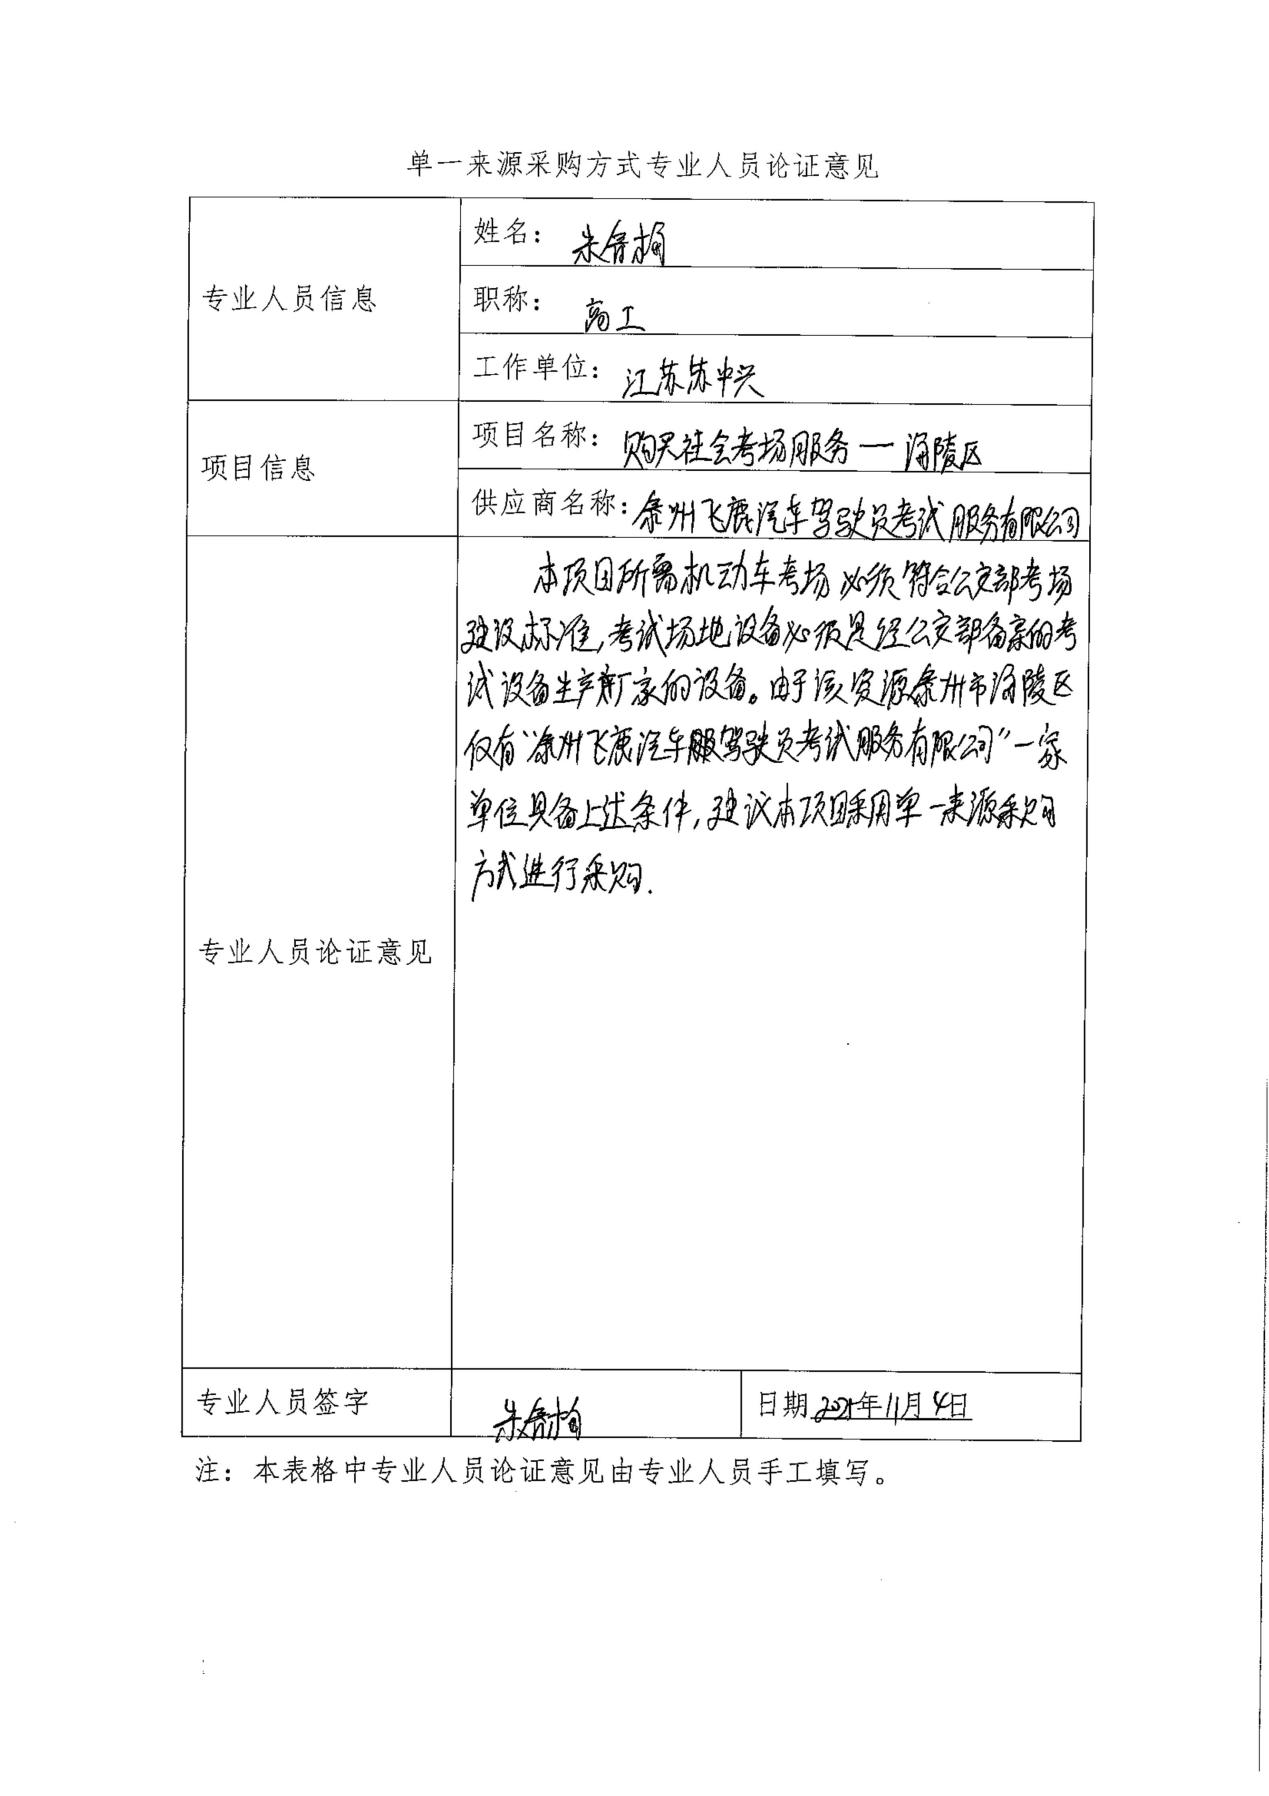 单一来源采购方式专业人员论证意见
专业人员信息
姓名：朱
职称：高工
工作单位：江苏苏中兴
项目信息
项目名称：购买社会考场服务一海陵区
供应商名称：泰州飞鹿汽车驾驶员考试服务有限公司
专业人员论证意见
本项目所需机动车考场必须符合公安部考场
建设标准，考试场地设备必须是经公安部备案的考
试设备生产厂家的设备。由于该资源泰州市海陵区
仅有“泰州飞鹿汽车驾驶员考试服务有限公司”一家
单位具备上述条件，建议本项目采用单一来源采购
方式进行采购.
专业人员签字
朱
日期 年11月4日
注：本表格中专业人员论证意见由专业人员手工填写。